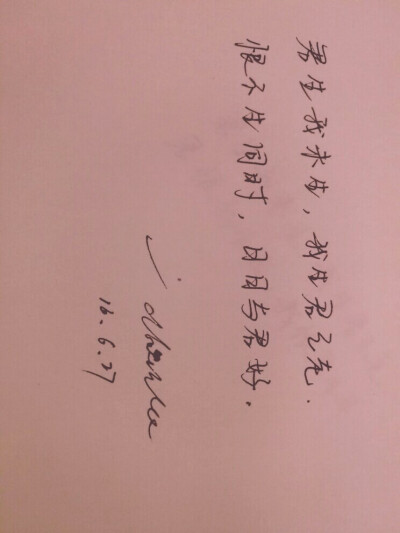 君生我未生，我生君已老.
恨不生同时，日日与君好。
16.6.27